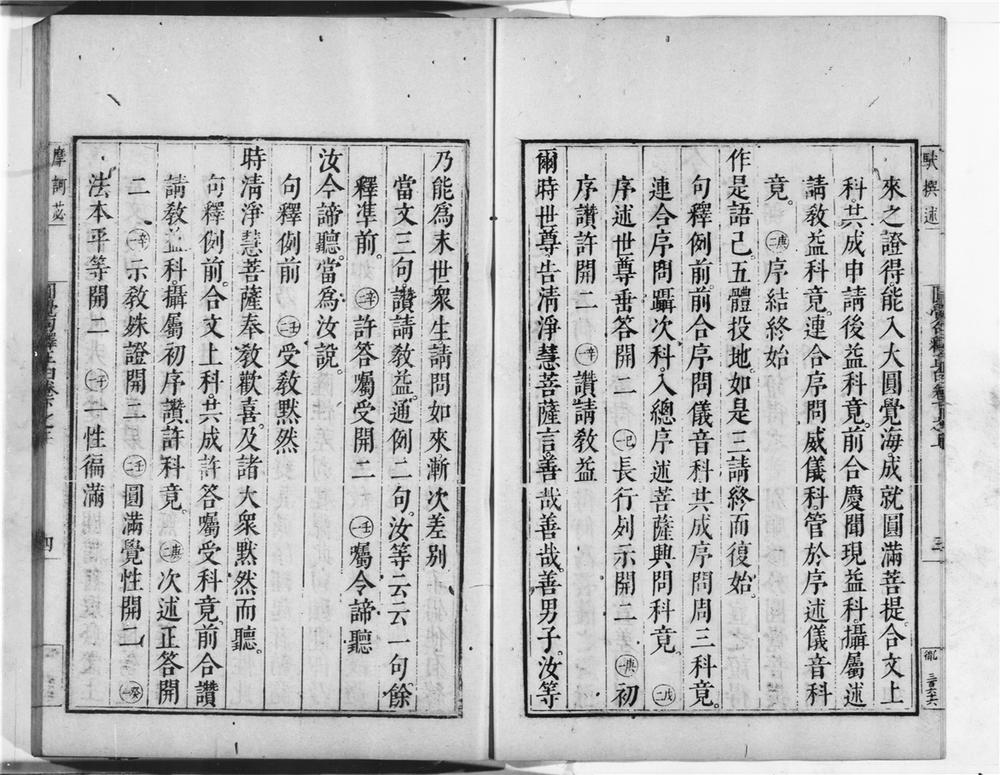 馱撰述
三
來之證得。能入大圓覺海。成就圓滿菩提。合文上
科。共成申請後益科竟。前合慶聞現益科。攝屬述
請敎益科竟。連合序問威儀科。管於序述儀音科
竟。㊁庚序結終始
作是語已。五體投地。如是三請。終而復始。
句釋例前。前合序問儀音科。共成序問周三科竟。
連合序問躡次科。入總序述菩薩興問科竟。㊁戊
序述世尊垂答開二㊀己長行列示開二㊀庚初
序讚許開二㊀辛讚請敎益
爾時世尊告清淨慧菩薩言。善哉善哉。善男子。汝等
乃能爲末世衆生請問如來漸次差別
當文三句。讚請敎益。通例二句。汝等云云一句。餘
釋準前。㊁辛許答屬受開二㊀壬屬令諦聽
汝今諦聽。當爲汝說。
句釋例前㊁壬受敎默然
時清淨慧菩薩奉敎歡喜。及諸大衆默然而聽。
句釋例前。合文上科。共成許答屬受科竟。前合讚
請敎益科。攝屬初序讚許科竟。㊁庚次述正答開
二㊀辛示敎姝證開二㊀壬圓滿覺性開二㊀癸
法本平等開二㊀子一性徧滿
摩訶苾
四